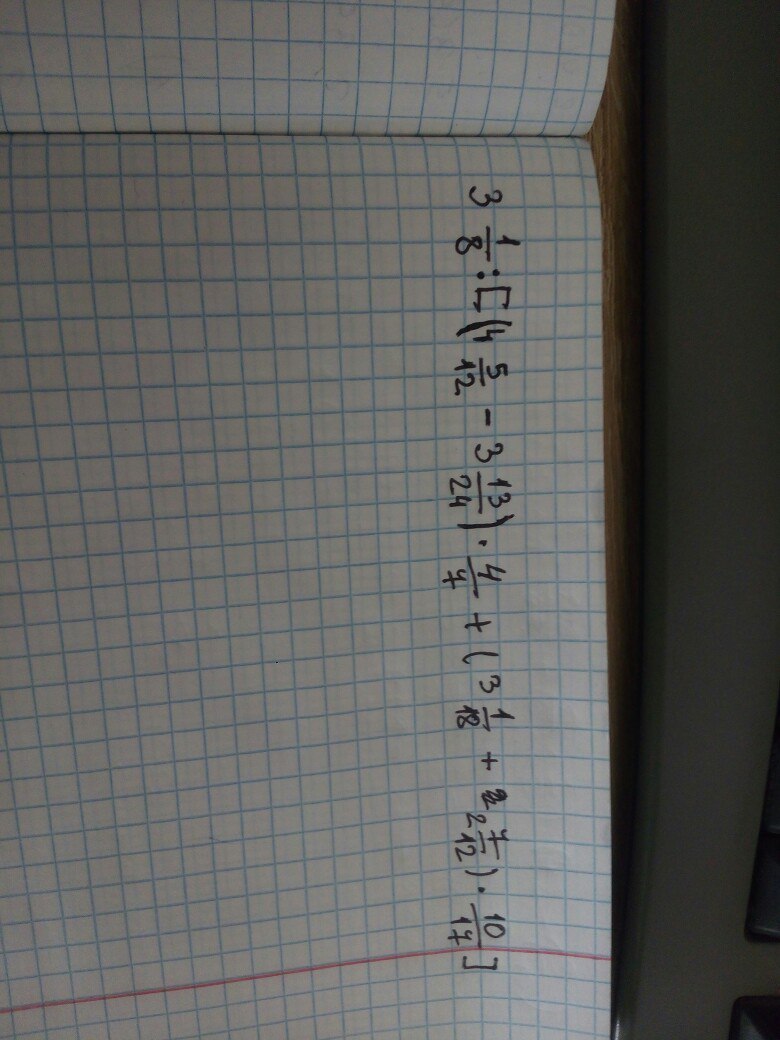 3 1/8 : [(4 5/12 - 3 13/24) · 4/7 + (3 1/18 + 2 7/12) · 10/17]